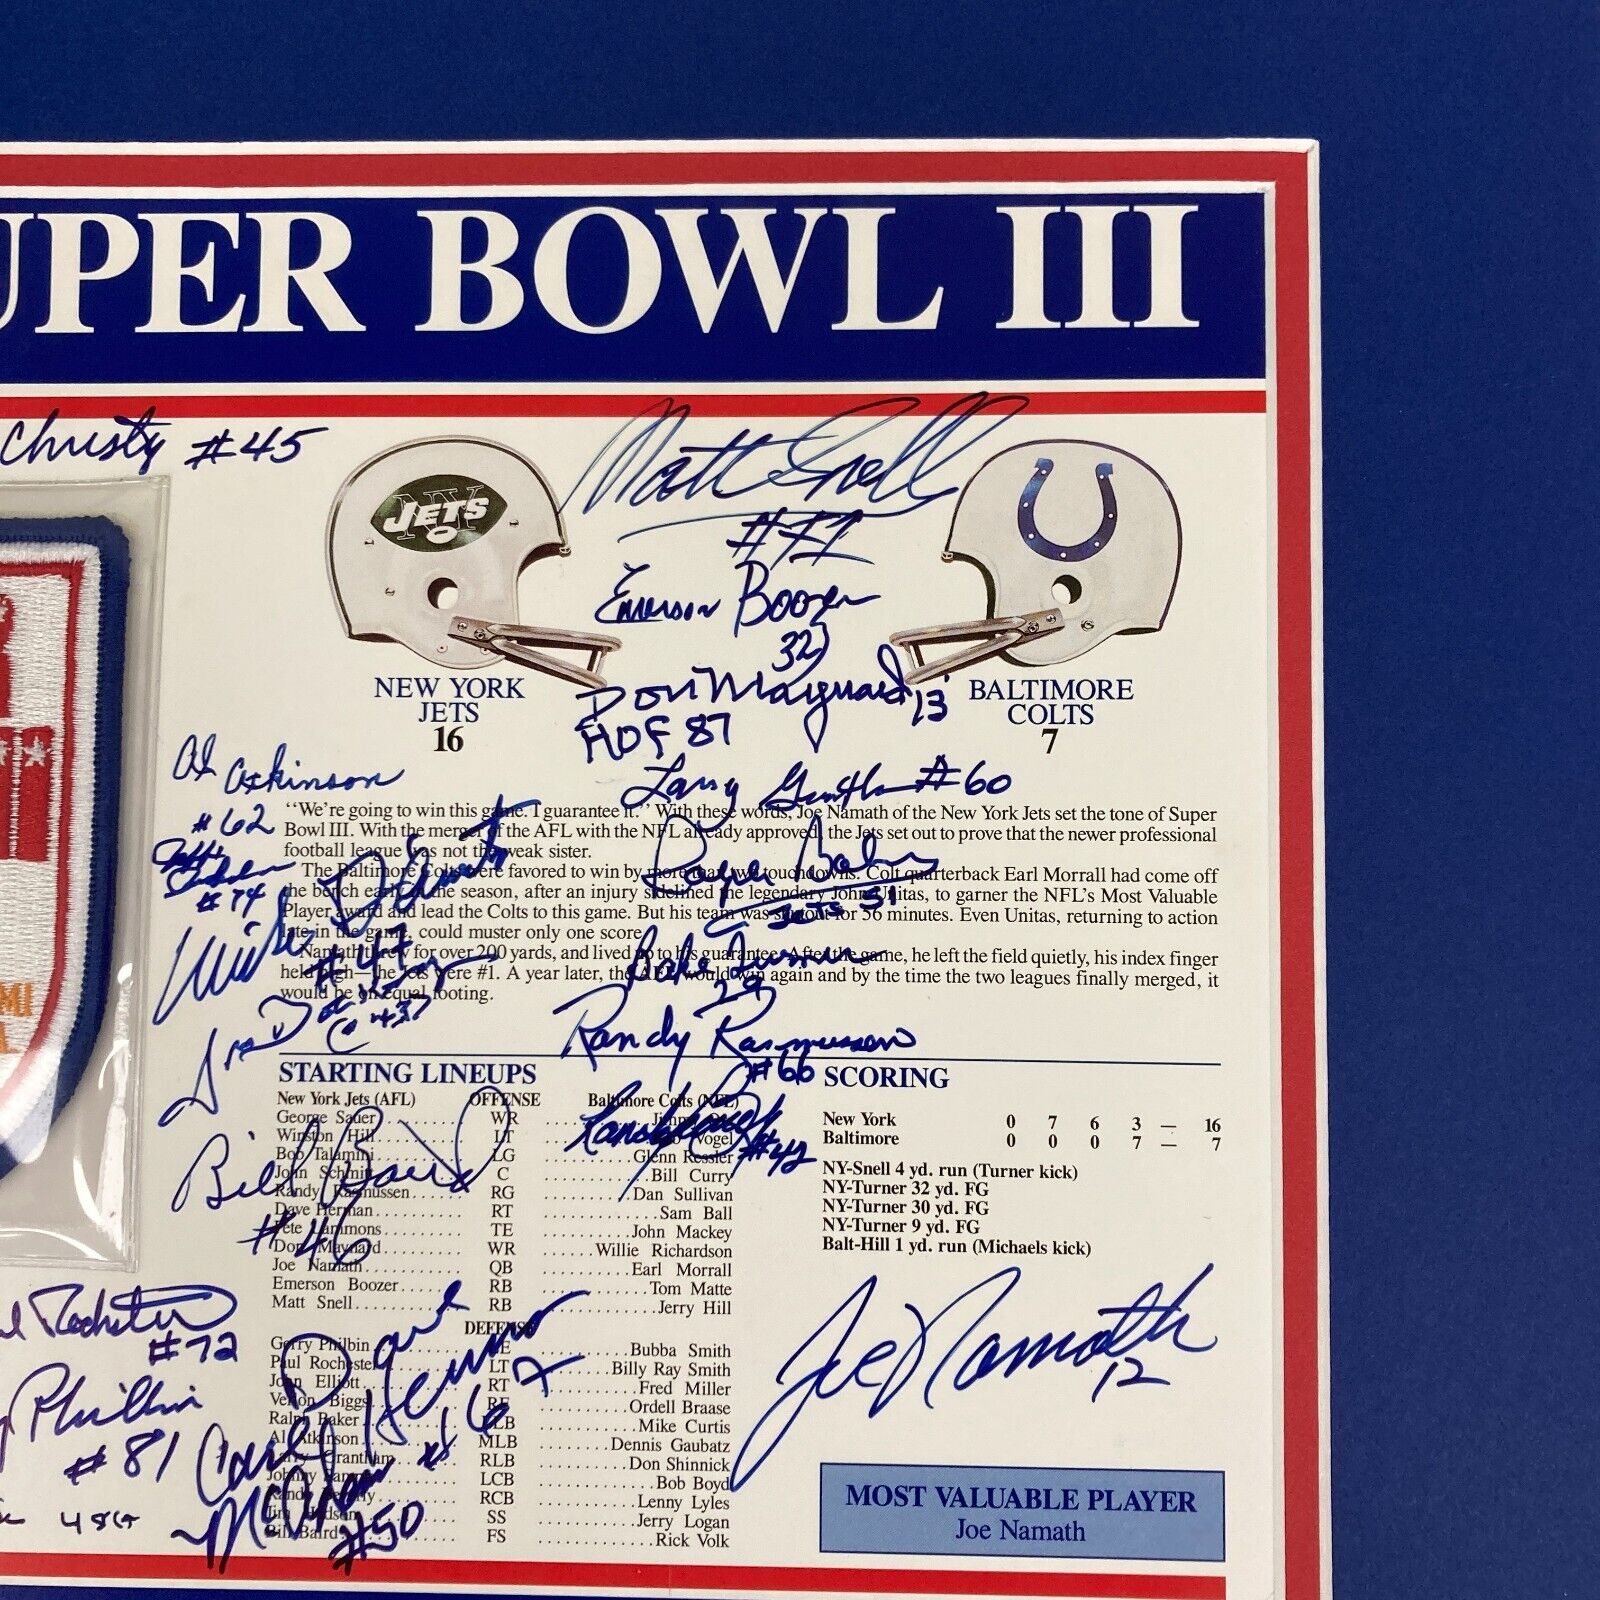 UPER BOWL III
Christy #45
Matt Snell
#41
JETS
NY
Emerson Boozer
32
NEW YORK
JETS
16
Don Maynard 13
HOF 87
BALTIMORE
COLTS
7
Al Atkinson
#62
Larry Grantham #60
"We're going to win this game. I guarantee it." With these words, Joe Namath of the New York Jets set the tone of Super
Bowl III. With the merger of the AFL with the NFL already approved, the Jets set out to prove that the newer professional
football league was not the weak sister.
The Baltimore Colts were favored to win by more than two touchdowns. Colt quarterback Earl Morrall had come off
the bench early in the season, after an injury sidelined the legendary John Unitas, to garner the NFL's Most Valuable
Player award and lead the Colts to this game. But his team was shutout for 56 minutes. Even Unitas, returning to action
late in the game, could muster only one score.
Namath threw for over 200 yards, and lived up to his guarantee. After the game, he left the field quietly, his index finger
held high—the Jets were #1. A year later, the AFL would win again and by the time the two leagues finally merged, it
would be on equal footing.
#74
Mike D'Amato
#47
Ralph Baker
Jets 51
Bake Turner
29
Randy Rasmussen
#66
Randy Beverly
#42
MI
A
STARTING LINEUPS
New York Jets (AFL) OFFENSE Baltimore Colts (NFL)
George Sauer WR Jimmy Orr
Winston Hill LT Bob Vogel
Bob Talamini LG Glenn Ressler
John Schmitt C Bill Curry
Randy Rasmussen RG Dan Sullivan
Dave Herman RT Sam Ball
Pete Lammons TE John Mackey
Don Maynard WR Willie Richardson
Joe Namath QB Earl Morrall
Emerson Boozer RB Tom Matte
Matt Snell RB Jerry Hill
DEFENSE
Gerry Philbin LE Bubba Smith
Paul Rochester LT Billy Ray Smith
John Elliott RT Fred Miller
Verlon Biggs RE Ordell Braase
Ralph Baker LLB Mike Curtis
Al Atkinson MLB Dennis Gaubatz
Larry Grantham RLB Don Shinnick
Johnny Sample LCB Bob Boyd
Randy Beverly RCB Lenny Lyles
Jim Hudson SS Jerry Logan
Bill Baird FS Rick Volk
Bill Baird
#46
Rochester
#72
Philbin
#81
Dave Herman
#67
Carl McAdams
#50
SCORING
New York 0 7 6 3 — 16
Baltimore 0 0 0 7 — 7
NY-Snell 4 yd. run (Turner kick)
NY-Turner 32 yd. FG
NY-Turner 30 yd. FG
NY-Turner 9 yd. FG
Balt-Hill 1 yd. run (Michaels kick)
Joe Namath
12
MOST VALUABLE PLAYER
Joe Namath